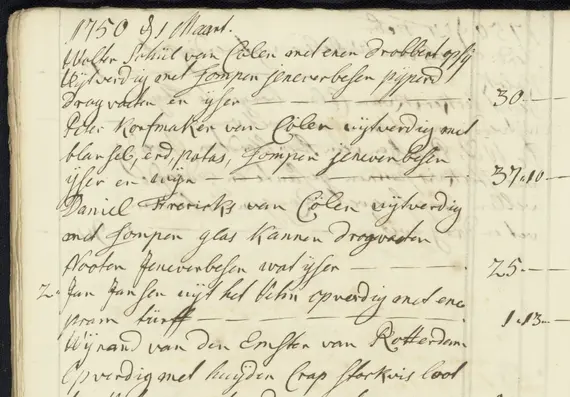 1750 d 1 Maart.
Wolter Schül van Cölen met enen drobbert op sij
Uijtverdig met Lompen jeneverbesen pijperd
drogvaten en ijser — 30. —
Peter Korfmaker van Cölen uijtverdig met
blausel, erd, potas, Lompen jeneverbesen
ijser en wijn — 37.10 —
Daniel Frericks van Cölen uijtverdig
met Lompen glas Kannen drogvaten
Nooten Jeneverbesen wat ijser — 25. —
2. Jan Jansen uijt het Vehn opverdig met ene
pram türff — 1.13 —
Wijnand van den Emster van Rotterdam
Opverdig met huijden Crap Stockvis loot